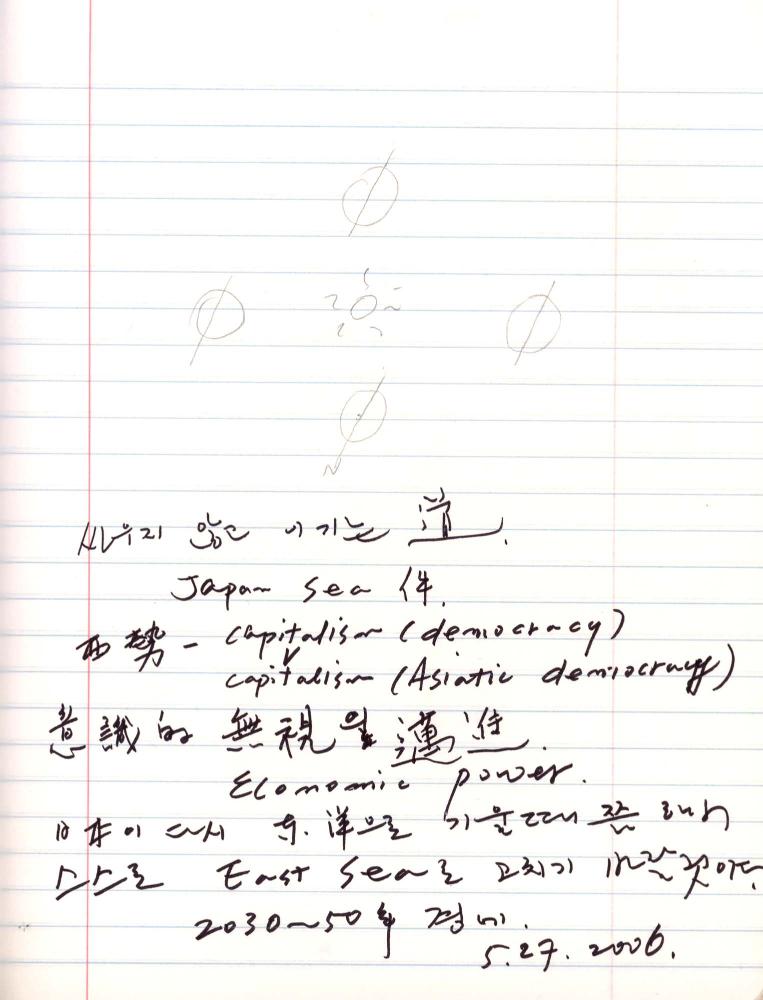 싸우지 않고 이기는 道.
Japan sea 件.
西勢 - capitalism (democracy)
capitalism (Asiatic democracy)
意識的 無視을 邁進.
Economic power.
日本이 다시 東.洋으로 기울때 쯤
스스로 East Sea로 고치기 것이다.
2030~50年 경에.
5.27.2006.